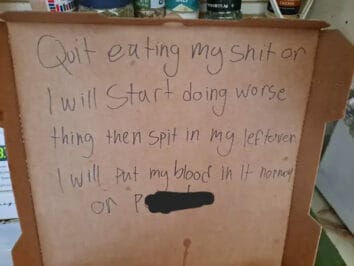 Quit eating my shit or
I will Start doing worse
thing then spit in my leftover
I will put my blood in it
or P